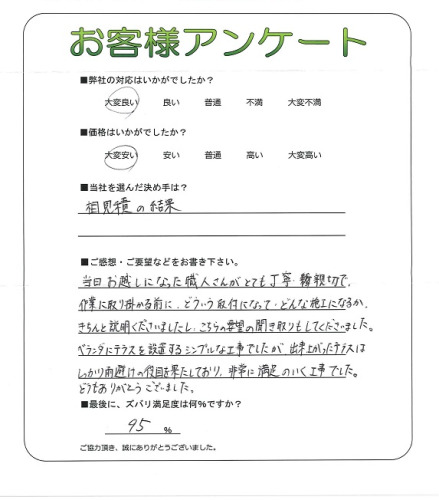 お客様アンケート
■弊社の対応はいかがでしたか？
大変良い 良い 普通 不満 大変不満
■価格はいかがでしたか？
大変安い 安い 普通 高い 大変高い
■当社を選んだ決め手は？
相見積の結果
■ご感想・ご要望などをお書き下さい。
当日お越しになった職人さんがとても丁寧・親切で、
作業に取り掛かる前に、どういう取付になって・どんな施工になるか、
きちんと説明くださいましたし、こちらの要望の聞き取りもしてくださいました。
ベランダにテラスを設置するシンプルな工事でしたが、出来上がったテラスは
しっかり雨避けの役目を果たしており、非常に満足のいく工事でした。
どうもありがとうございました。
■最後に、ズバリ満足度は何％ですか？
95 %
ご協力頂き、誠にありがとうございました。